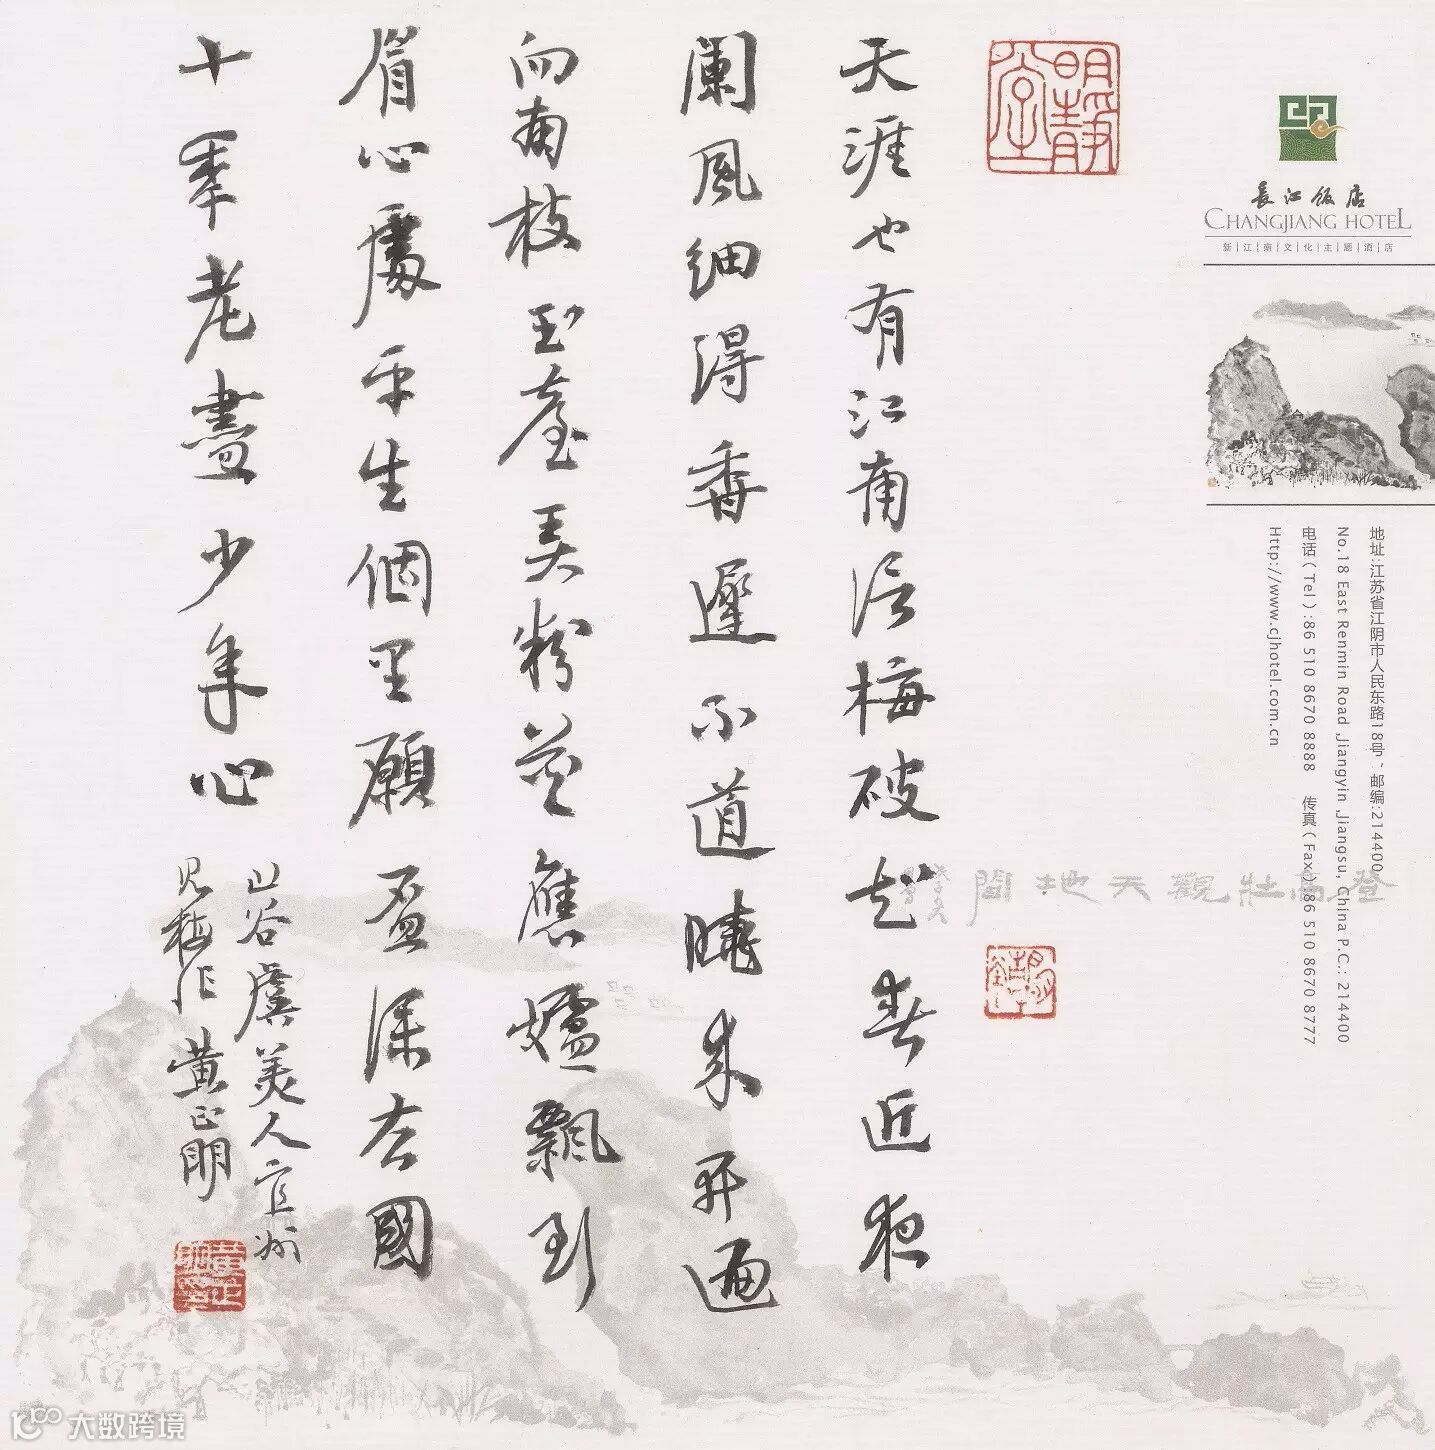 長江飯店
CHANGJIANG HOTEL
新江南文化主题酒店
地址:江苏省江阴市人民东路18号、邮编:214400
No.18 East Renmin Road ,Jiangyin ,Jiangsu, China P.C.: 214400
电话(Tel):86 510 8670 8888 传真(Fax):86 510 8670 8777
Http://www.cjhotel.com.cn
登高壯觀天地間
明靜堂
天涯也有江南信梅破知春近夜
闌風細得香遲不道曉來开遍
向南枝玉臺弄粉花應妒飄到
眉心處平生個里願盃深去國
十年老盡少年心
山谷虞美人宜州
見梅作 黄正明
黄正明印
大数跨境